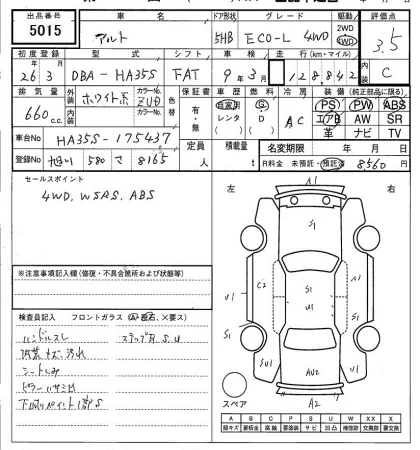 出品番号 車名 ドア形状 グレード 駆動 評価点
5015 アルト 5HB ECO-L 4WD 2WD 4WD 3.5
初度登録 型式 シフト 車検 走行(km・マイル) 内装
26年3月 DBA-HA35S FAT 9年3月 128,842 C
排気量 外装 ホワイト系 カラーNo. ZUD 色替 保証書 車歴 燃料 冷房 装備(純正部品に限る)
660c.c. 内装 カラーNo. 有・無 自家用 レンタ G D AC PS PW ABS
エアB AW SR
革 ナビ TV
車台No HA35S-175437 定員 人 積載量 t 名変期限 年 月 日
登録No 旭川 580 さ 8165 R料金 未預託・預託済 8,560円
セールスポイント
4WD, WSRS, ABS
左 右
A1
S1
C2 S1 U1
U1 U1
S1 S1
SU1 AU2 U1
A2
スペア
※注意事項記入欄(修復・不具合箇所および状態等)
検査員記入 フロントガラス (A・飛石、×要ス)
ハンドルスレ ステップ耳 S.U
内装キズ、汚れ
シートしみ
ピラーハサミ凹
下廻りペイント1部S
A B C P S U W XX X
線キズ 要板金 腐蝕 要塗装 サビ 凹凸 補修跡 交換跡 要交換